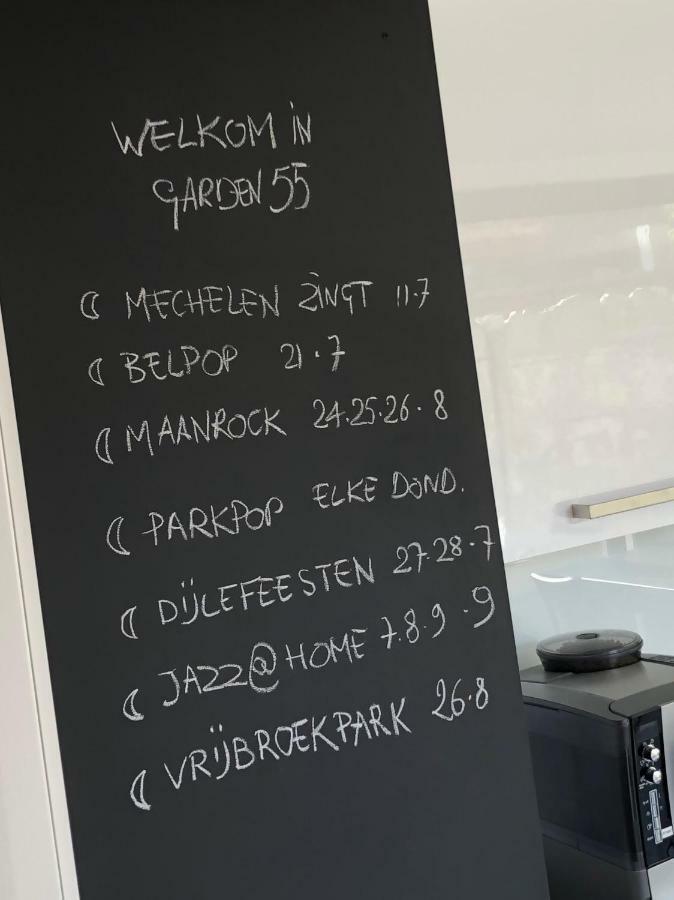 WELKOM IN
GARDEN 55
MECHELEN ZINGT 11.7
BELPOP 21.7
MAANROCK 24.25.26.8
PARKPOP ELKE DOND.
DIJLEFEESTEN 27.28.7
JAZZ@HOME 7.8.9.9
VRIJBROEKPARK 26.8